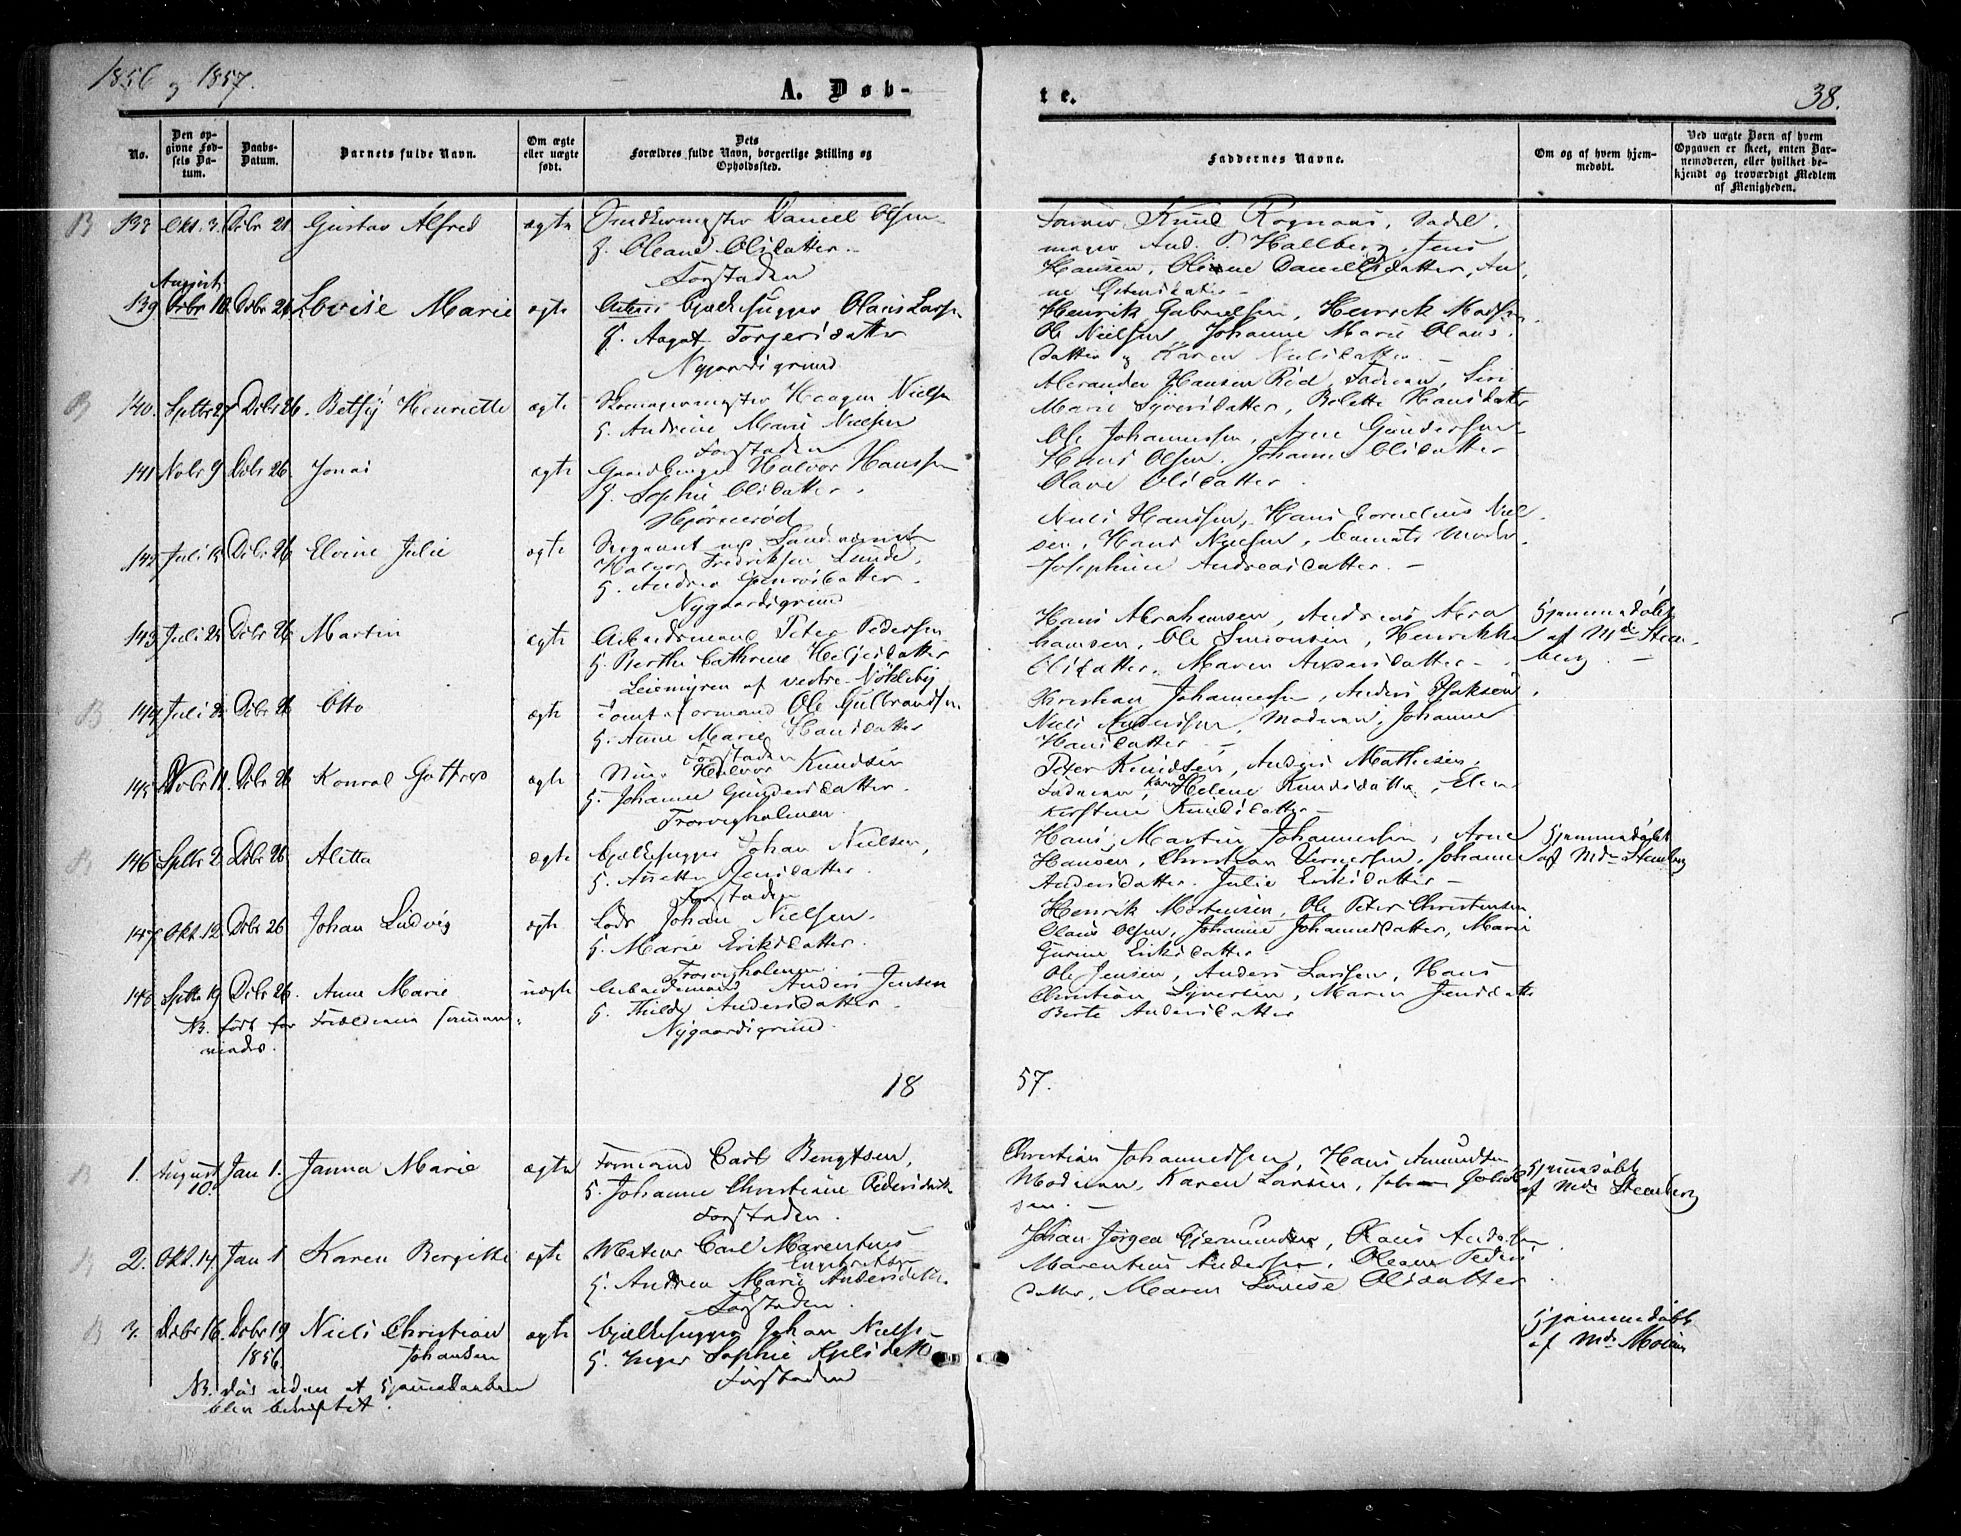 1856 og 1857.
A. Døb-
te.
38.
No.
Den op-
givne Fød-
sels Da-
tum.
Daabs-
Datum.
Barnets fulde Navn.
Om ægte
eller uægte
født.
Dets
Forældres fulde Navn, borgerlige Stilling og
Opholdssted.
Faddernes Navne.
Om og af hvem hjem-
medøbt.
Ved uægte Børn af hvem
Opgaven er skeet, enten Bar-
nemoderen, eller hvilket be-
kjendt og troværdigt Medlem
af Menigheden.
B 138 Okt. 3. Dcbr 21 Gustav Alfred ægte Snedkermester Daniel Olsen
G. Oleane Olsdatter.
Forstaden
Knud Rognaas, Sadel
mager And. P. Hallberg, Jens
Hansen, Oline Danielsdatter, An
ne Østensdatter
August
139 Dcbr 10. Dcbr 26 Lovise Marie ægte Bjelkehugger Olaus Larsen
G. Aagot Torgersdatter
Nygaardsgrund
Henrik Gabrielsen, Henrik Madsen
Ole Nielsen, Johanne Marie Olaus
datter og Karen Nielsdatter.
B 140. Sptbr 27 Dcbr 26. Betsy Henriette ægte Skomagermester Haagen Nielsen
G. Andrine Marie Nielsen
Forstaden
Alexander Hansen Rød, Faderen, Siri
Marie Syversdatter, Bolette Hansdatter
141 Nobr 9 Dcbr 26. Jonas ægte Gaardbruger Halvor Hanssen
G. Sophie Olsdatter.
Hjørnerød
Ole Johannessen, Arne Gundersen
Hans Olsen. Johanne Olsdatter
Olave Olsdatter.
142 Juli 13 Dcbr 26 Elvine Julie ægte Sergeant ved Landværnet
Halvor Fredriksen Lunde,
G. Andrea
Nygaardsgrund
Niels Hanssen, Hans Cornelius Niel
sen, Hans Nielsen, Barnets Moder
Josephine Andreasdatter.
143 Juli 23 Dcbr 26 Martin ægte Arbeidsmand Peter Pedersen
G. Berthe Cathrine Helgesdatter
Leiemyren af vestre Nøkleby
Hans Abrahamsen, Andreas Abra
hamsen, Ole Simonsen, Henrikke
Olsdatter, Maren Andersdatter
Hjemmedøbt
af Md Steen-
berg.
B 144 Juli 2 Dcbr 26 Otto ægte Tomteformand Ole Gulbrandsen
G. Anne Marie Hansdatter
Forstaden
Christian Johannessen, Anders Isaksen,
Niels Andersen, Moderen, Johanne
Hansdatter
145 Nobr 11. Dcbr 26 Konrad Gotfred ægte Halvor Knudsen
G. Johanne Gundersdatter.
Trosvigholmen.
Peter Knudsen, Anders Mathiesen,
Faderen, Karen Helene Knudsdatter, Elen
Kirstine Knudsdatter
B 146 Sptbr 2. Dcbr 26 Alitta ægte Bjelkehugger Johan Nielsen,
G. Anette Jensdatter.
Forstaden
Hans Martin Johannessen, Arne
Hansen, Christian Vernersen, Johanne
Andersdatter. Julie Eriksdatter
Hjemmedøbt
af Mdm Steenberg
147 Okt. 12. Dcbr 26 Johan Ludvig ægte Lods Johan Nielsen.
G. Marie Eriksdatter.
Trosvigholmen.
Henrik Mortensen, Ole Peter Christensen
Olaus Olsen, Johanne Johannesdatter, Marie
Gurine Eriksdatter.
148. Sptbr 19 Dcbr 26. Anne Marie uægte Arbeidsmand Anders Jensen
G. Thilde Andersdatter.
Nygaardsgrund.
NB. født før Forældrenes Sammen-
viedes.
Ole Jensen, Anders Larssen, Hans
Christian Syvertsen, Maren Jensdatter
Berte Andersdatter
18 57.
B 1. August 10. Jan 1. Janna Marie ægte Formand Carl Bengtsen,
G. Johanne Christiane Pedersdatter
Forstaden.
Christian Johannessen, Hans Amundsen
Moderen, Karen Larsen,
sen.
Hjemmedøbt
af Mdm Steenberg
B 2. Okt. 14. Jan 1 Karen Bergitte ægte Matros Carl Marentius
Engebretsen
G. Andrea Marie Andersdatter.
Forstaden.
Johan Jørgen Gjermundsen, Claus Andersen
Marentius Andersen, Oleane Peders
datter, Maren Lovise Olsdatter
B 3. Dcbr 16. Dcbr 19 1856. Niels Christian Johansen ægte Bjelkehugger Johan Nielsen
G. Inger Sophie Kjelsdatter
Forstaden
NB. død uden at Hjemmedaaben
blev bekræftet.
Hjemmedøbt
af Mdm Moen